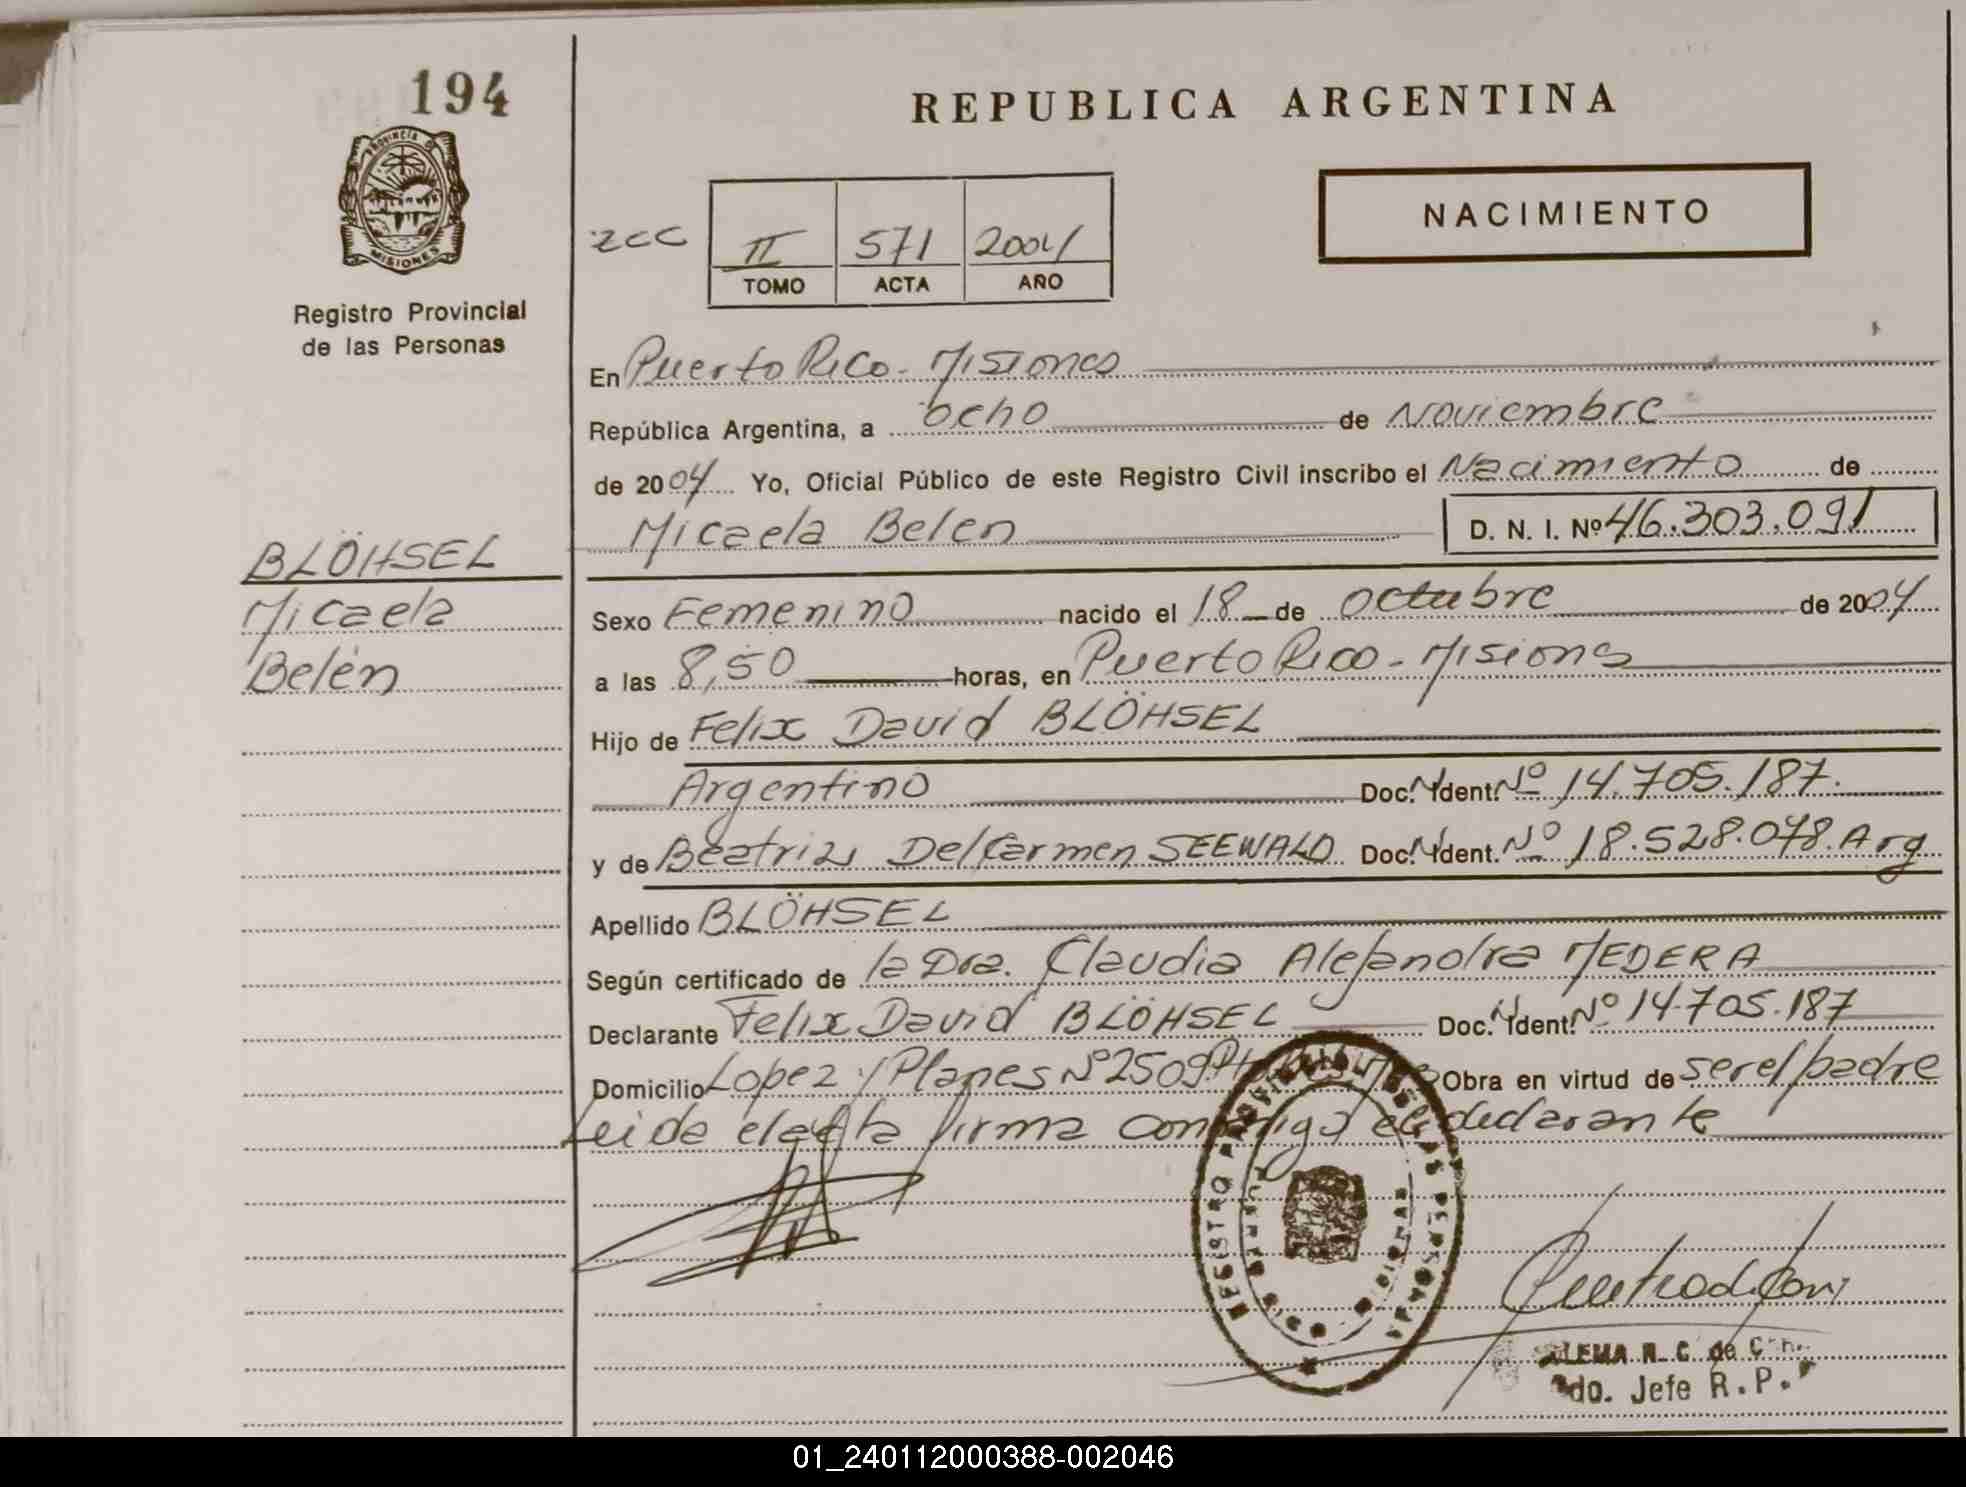 194
PROVINCIA DE
MISIONES
Registro Provincial
de las Personas
REPUBLICA ARGENTINA
NACIMIENTO
zcc
II 571 2004
TOMO ACTA AÑO
En Puerto Rico - Misiones
República Argentina, a ocho de Noviembre
de 2004 Yo, Oficial Público de este Registro Civil inscribo el Nacimiento de
Micaela Belen D. N. I. Nº 46.303.091
BLÖHSEL
Micaela
Belén
Sexo Femenino nacido el 18 de octubre de 2004
a las 8,50 horas, en Puerto Rico - Misiones
Hijo de Felix David BLÖHSEL
Argentino Doc. N. Ident. Nº 14.705.187.
y de Beatriz Del Carmen SEEWALD Doc. N. Ident. Nº 18.528.078. Arg
Apellido BLÖHSEL
Según certificado de la Dra. Claudia Alejandra MEDERA
Declarante Felix David BLÖHSEL Doc. N. Ident. Nº 14.705.187
Domicilio Lopez y Planes Nº 2509 Obra en virtud de ser el padre
Leida el acta firma conmigo el declarante
REGISTRO PROVINCIAL DE LAS PERSONAS
MISIONES
R. C. de
Jefe R. P.
01_240112000388-002046